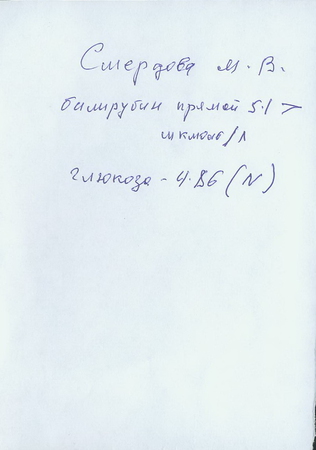 Смердова М. В.
билирубин прямой 5.1 >
мкмоль/л
глюкоза - 4.86 (N)